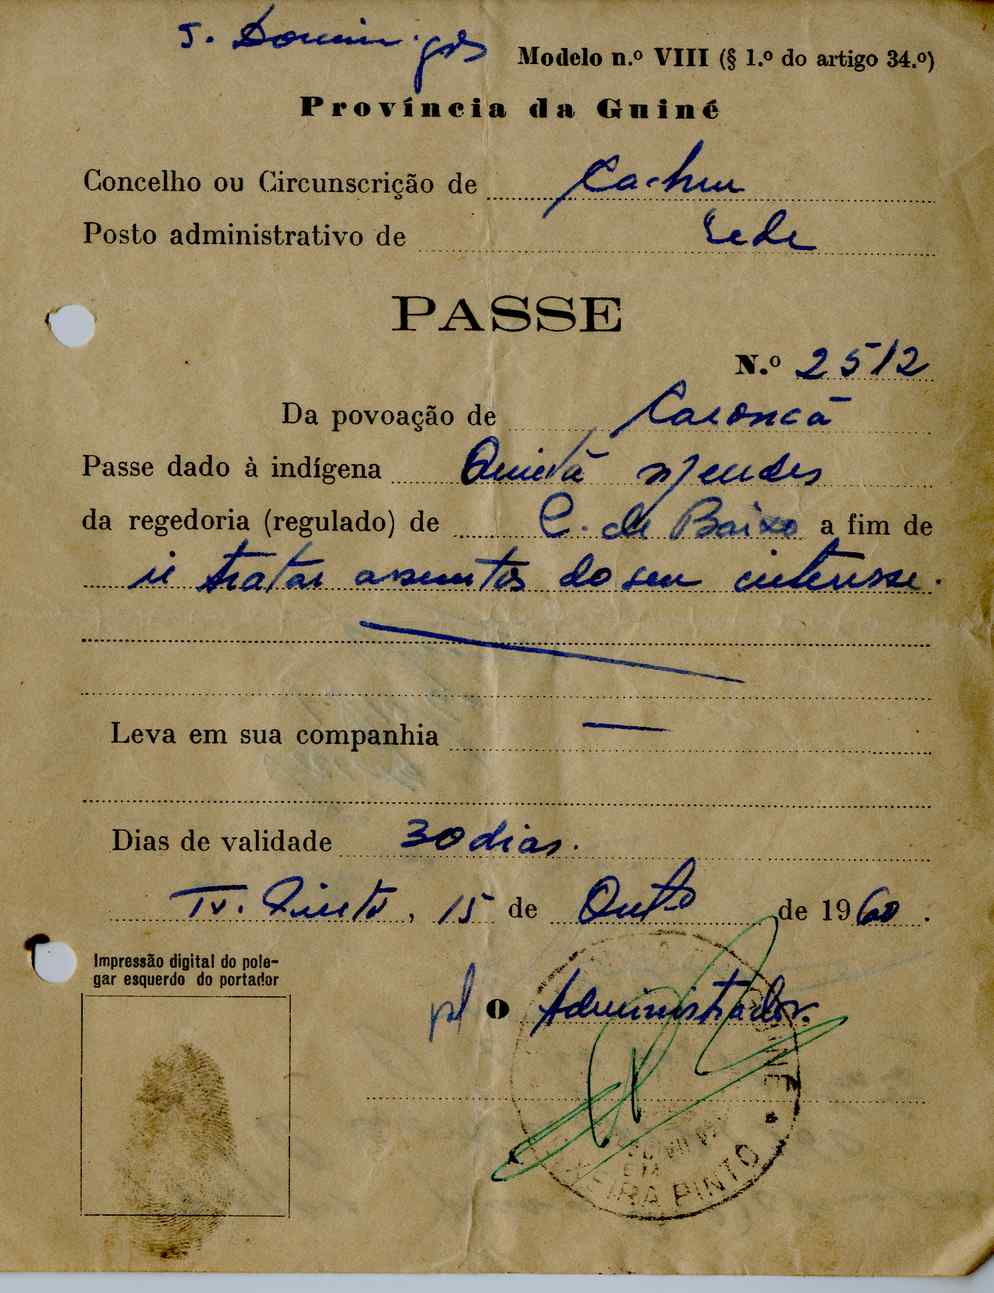 S. Domingos
Modelo n.º VIII (§ 1.º do artigo 34.º)
Província da Guiné
Concelho ou Circunscrição de Cacheu
Posto administrativo de Sede
PASSE
N.º 2512
Da povoação de
Passe dado à indígena Mendes
da regedoria (regulado) de C. de Baixo a fim de
ir tratar assuntos do seu interesse.
Leva em sua companhia —
Dias de validade 30 dias.
Tx. Pinto, 15 de Outº de 1960.
Impressão digital do pole-
gar esquerdo do portador
pl O Administrador.
GUINÉ
EIRA PINTO